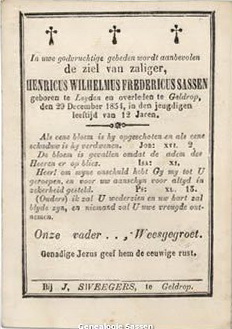 In uwe godvruchtige gebeden wordt aanbevolen
de ziel van zaliger,
HENRICUS WILHELMUS FREDERICUS SASSEN
geboren te Leyden en overleden te Geldrop,
den 29 December 1854, in den jeugdigen
leeftijd van 12 Jaren.
Als eene bloem is hy opgeschoten en als eene
schaduw is hy verdwenen. Job: XVI. 2.
De bloem is gevallen omdat de adem des
Heeren er op blies. Isa: XL.
Heer! om myne onschuld hebt Gy my tot U
geroepen, en voor uw aanschyn voor altyd in
zekerheid gesteld. Ps: XL. 13.
(Ouders) ik zal U wederzien en uw hart zal
blyde zyn, en niemand zal U uwe vreugde ont-
nemen.
Onze vader . . , Weesgegroet.
Genadige Jezus geef hem de eeuwige rust.
Bij J. SWEEGERS, te Geldrop.
Genealogie Sassen